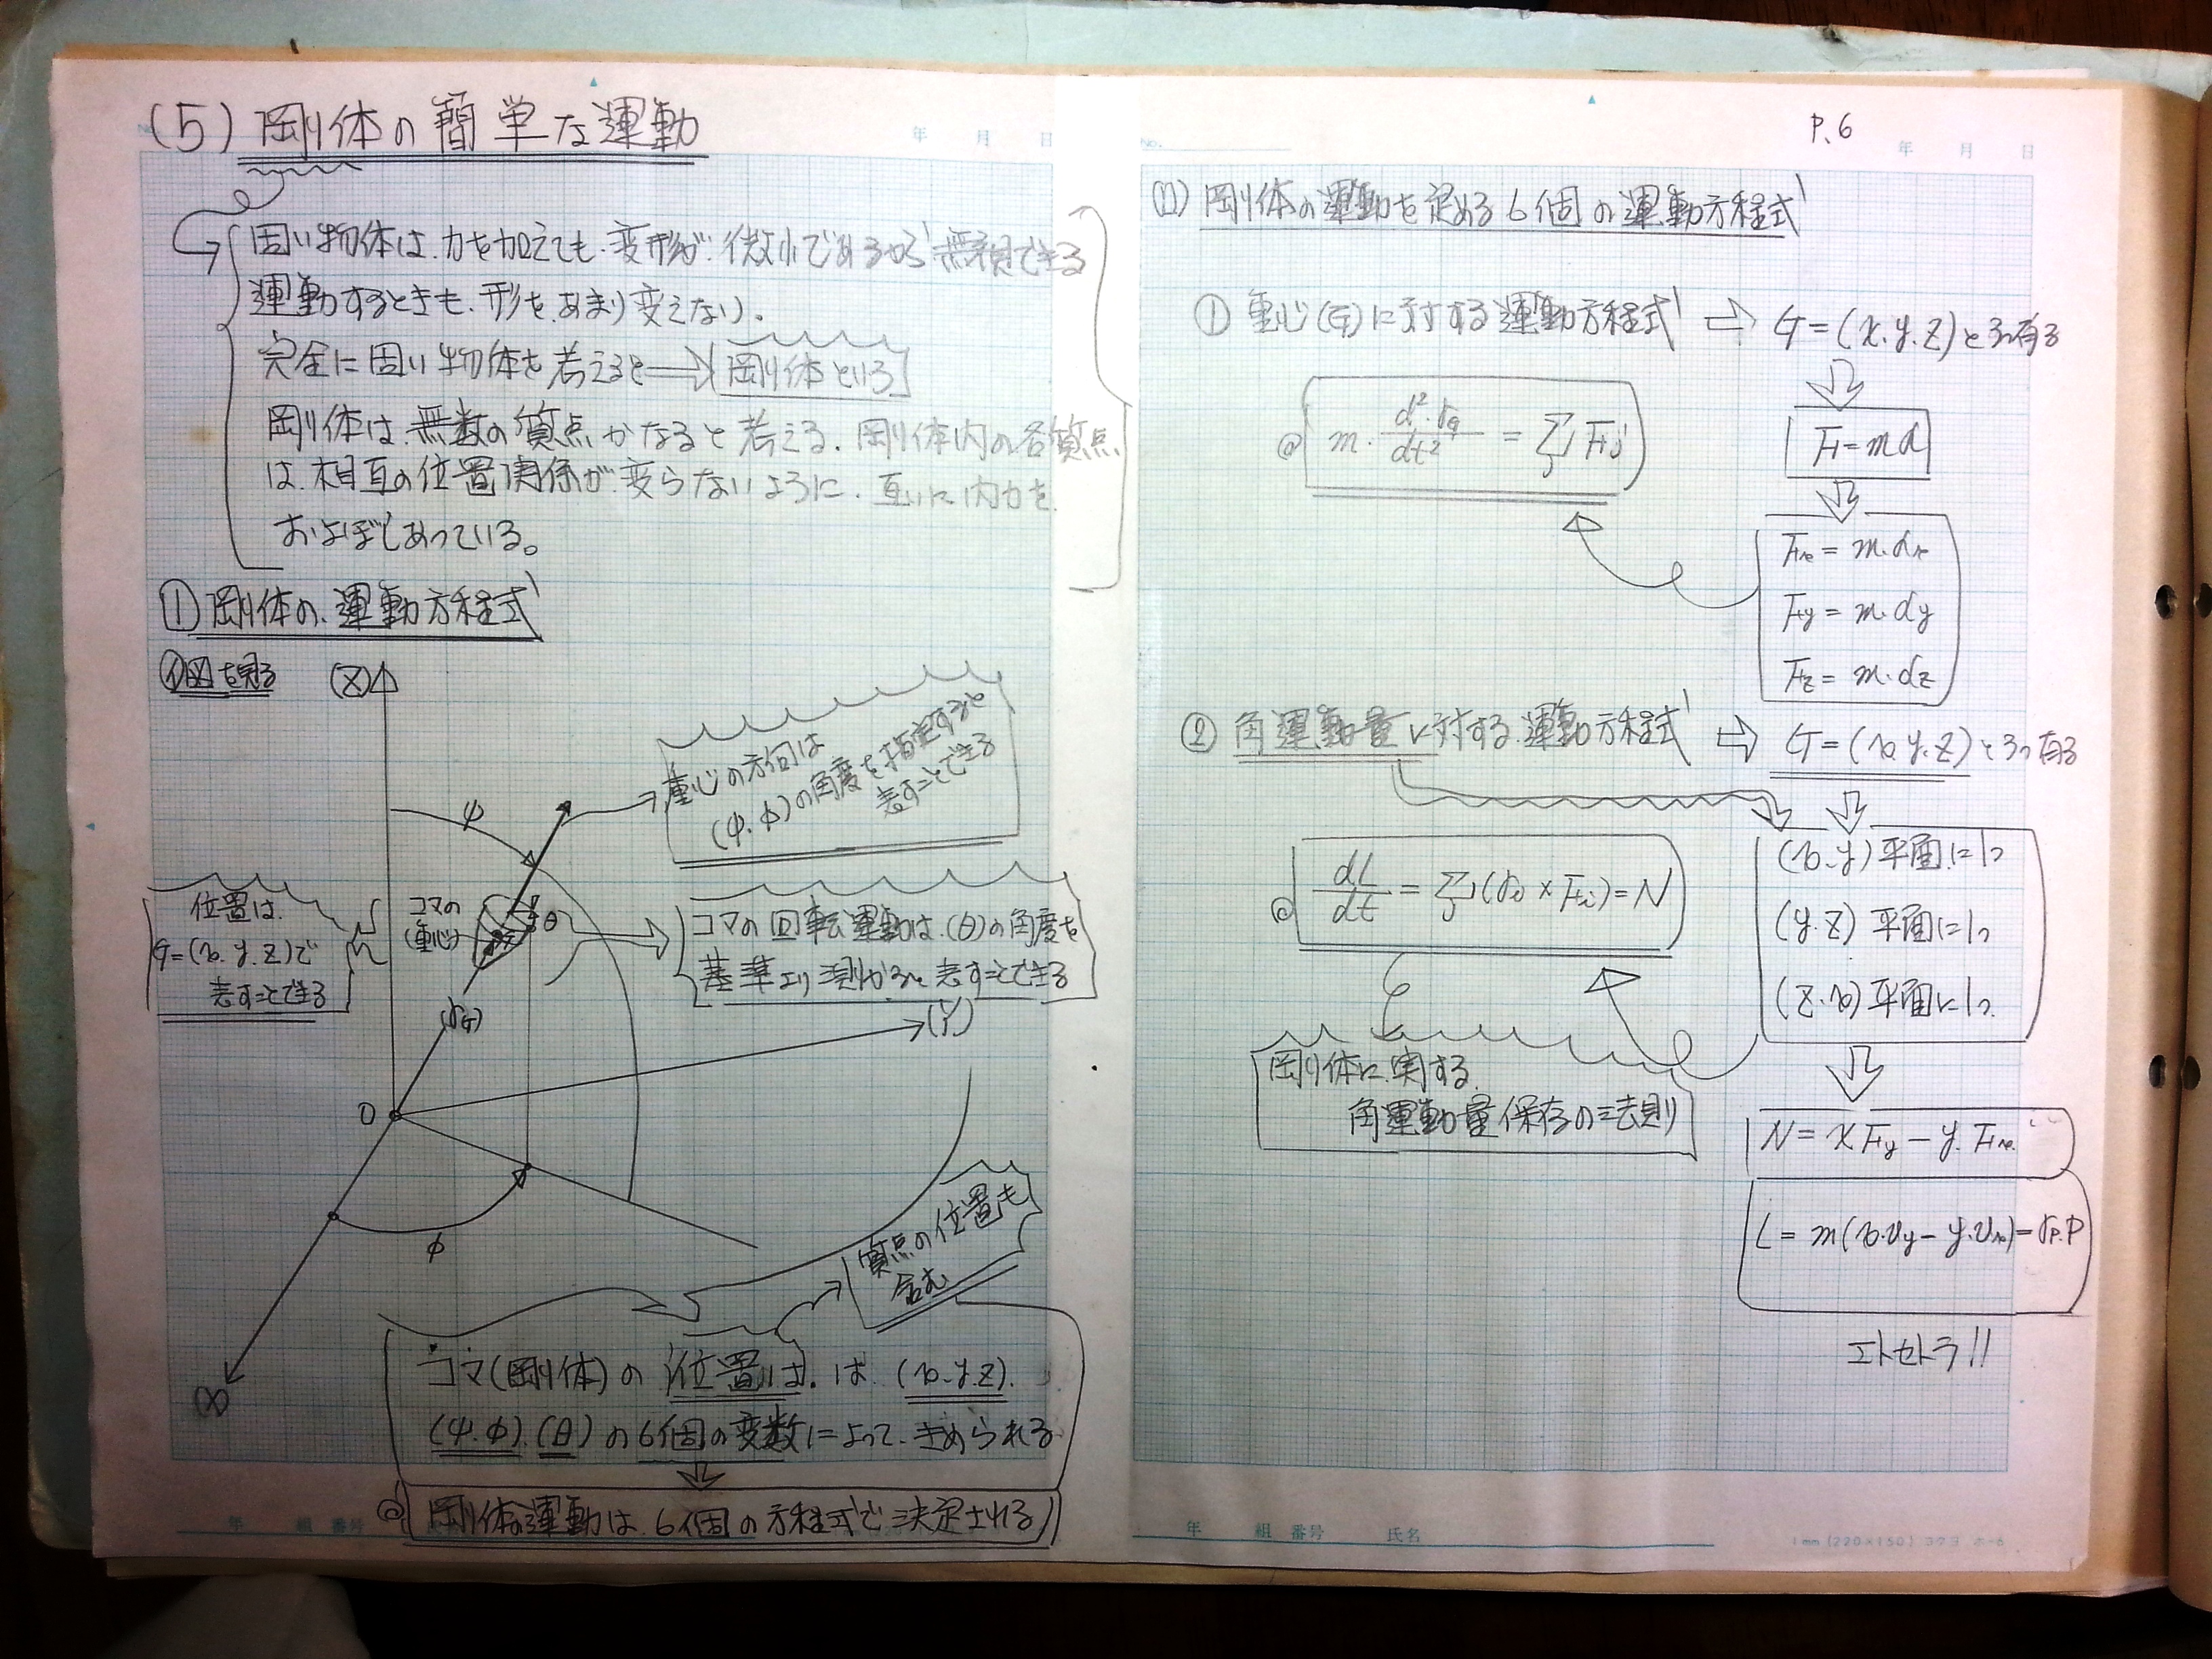 (5) 剛体の簡単な運動
固い物体は、力を加えても、変形が、微小であるから無視できる
運動するときも、形を、あまり変えない。
完全に固い物体を考えると⇒剛体という
剛体は、無数の質点からなると考える。剛体内の各質点
は、相互の位置関係が、変らないように、互いに内力を
およぼしあっている。
① 剛体の、運動方程式
図を見る
(Z)
ψ
重心の方向は
(ψ.φ)の角度を指定すると
表すことできる
位置は、
G=(x.y.z)で
表すことできる
コマの
(重心)
θ
コマの回転運動は、(θ)の角度を
基準より測かると表すことできる
(r_G)
(Y)
O
φ
(X)
質点の位置も
含む
コマ(剛体)の位置は、は (x.y.z).
(ψ.φ).(θ)の6個の変数によって、きめられる
剛体の運動は、6個の方程式で決定される
年 組 番号
年 月 日
No.
P.6
年 月 日
(ロ) 剛体の運動を定める6個の運動方程式
① 重心(G)に対する運動方程式 ⇒ G=(x.y.z)と3つ有る
m・d²・r_G/dt² = ΣFj
F=mα
Fx = m.αx
Fy = m.αy
Fz = m.αz
② 角運動量に対する運動方程式 ⇒ G=(x.y.z)と3つ有る
dL/dt = Σ(ri × Fi)=N
(x.y)平面に1つ
(y.z)平面に1つ
(z.x)平面に1つ
剛体に
角運動量保存の法則
N = xFy − y.Fx
L = m(x.vy − y.vx) = rp.P
エトセトラ!!
年 組 番号 氏名
1mm (220×150) コクヨ ホ-6